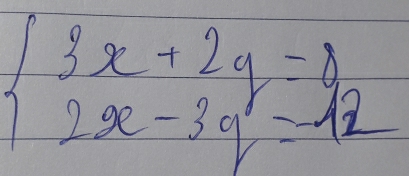 3x + 2y = 8
2x - 3y = -12